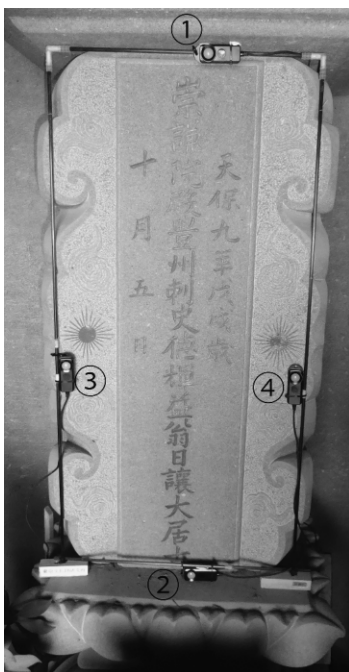 ①
天保九年戊戌歳
崇龍院殿豊州刺史徳輝益翁日讓大居士
十月五日
③
④
②